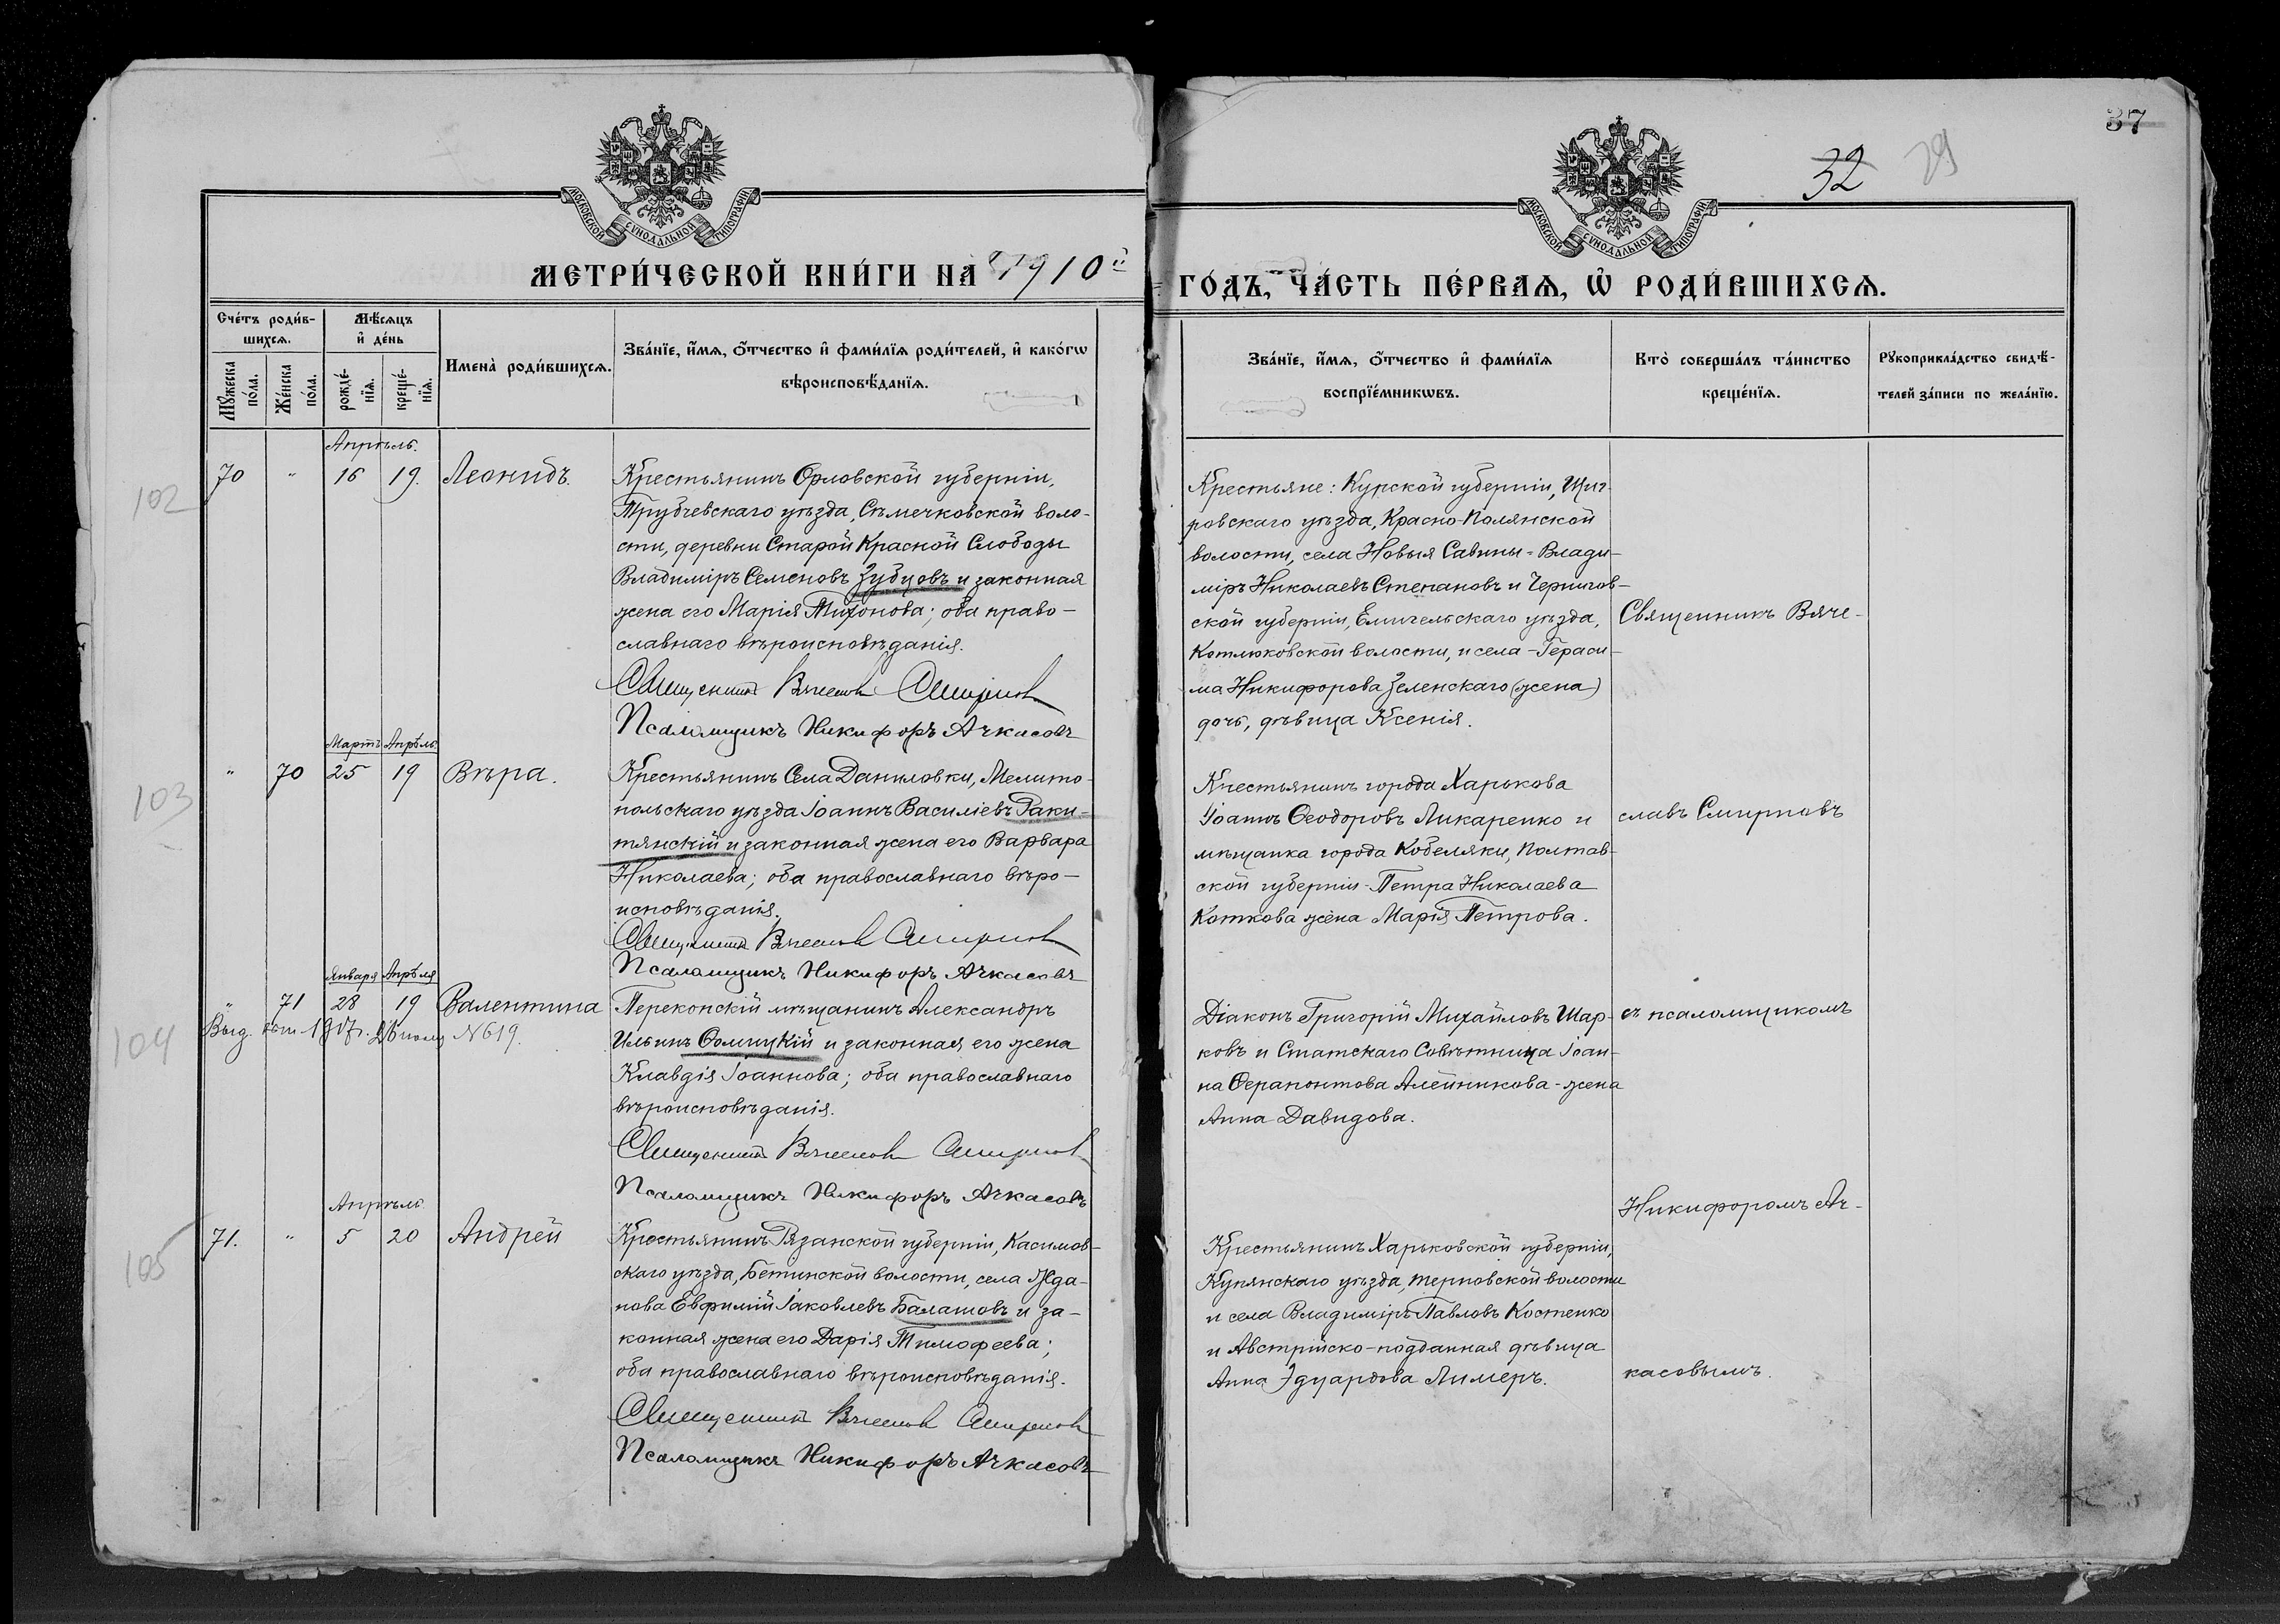 37
32
29
МОСКОВСКОЙ СѴНОДАЛЬНОЙ ТИПОГРАФІИ
МОСКОВСКОЙ СѴНОДАЛЬНОЙ ТИПОГРАФІИ
МЕТРИ́ЧЕСКОЙ КНИ́ГИ НА 1910й
ГО́ДЪ, ЧА́СТЬ ПЕ́РВАѦ, Ѡ҆ РОДИ́ВШИХСѦ.
Сче́тъ роди́в-
шихсѧ.
Мꙋ́жеска по́ла.
Же́нска по́ла.
Мѣ́сѧцъ
и҆ де́нь
рожде́-нїѧ.
креще́-нїѧ.
Имена̀ роди́вшихсѧ.
Зва́нїе, и҆́мѧ, ѻ҆́тчество и҆ фами́лїѧ роди́телей, и҆ како́гѡ
вѣроисповѣ́данїѧ.
Зва́нїе, и҆́мѧ, ѻ҆́тчество и҆ фами́лїѧ
воспрїе́мникѡвъ.
Кто̀ соверша́лъ та́инство
креще́нїѧ.
Рꙋкоприкла́дство свидѣ́-
телей за́писи по жела́нїю.
102
Апрѣль.
70 " 16 19. Леонидъ.
Крестьянинъ Орловской губерніи,
Трубчевскаго уѣзда, Сѣмечковской воло-
сти, деревни Старой Красной Слободы
Владиміръ Семеновъ Зубцовъ и законная
жена его Марія Тихонова; оба право-
славнаго вѣроисповѣданія.
Священникъ Вячеславъ Смирновъ
Псаломщикъ Никифоръ Ачкасовъ
Крестьяне: Курской губерніи, Щиг-
ровскаго уѣзда, Красно-Полянской
волости, села Новыя Савины - Влади-
міръ Николаевъ Степановъ и Чернигов-
ской губерніи, уѣзда,
волости, и села - Гераси-
ма Никифорова Зеленскаго (жена)
дочь, дѣвица Ксенія.
Священникъ Вяче-
103
Мартъ Апрѣль
" 70 25 19 Вѣра.
Крестьянинъ Села Даниловки, Мелито-
польскаго уѣзда Іоаннъ Василіевъ Раки-
тянскій и законная жена его Варвара
Николаева; оба православнаго вѣро-
исповѣданія.
Священникъ Вячеславъ Смирновъ
Псаломщикъ Никифоръ Ачкасовъ
Крестьянинъ города Харькова
Іоаннъ Ѳеодоровъ Ликаренко и
мѣщанка города Кобеляки, Полтав-
ской губерніи - Петра Николаева
Коткова жена Марія Петрова.
славъ Смирновъ
104
Января Апрѣля
" 71 28 19 Валентина
Выд. 1917г. 26 N 619.
Перекопскій мѣщанинъ Александръ
Ильинъ Фомицкій и законная его жена
Клавдія Іоаннова; оба православнаго
вѣроисповѣданія.
Священникъ Вячеславъ Смирновъ
Псаломщикъ Никифоръ Ачкасовъ
Діаконъ Григорій Михайловъ Шар-
ковъ и Статскаго Совѣтница Іоан-
на Ѳерапонтова Алейникова - жена
Анна Давидова.
съ псаломщикомъ
105
Апрѣль
71. " 5 20 Андрей
Крестьянинъ Рязанской губерніи, Касимов-
скаго уѣзда, Бетинской волости, села Жда-
нова Евфимій Іаковлевъ Балашовъ и за-
конная жена его Дарія Тимофеева;
оба православнаго вѣроисповѣданія.
Священникъ Вячеславъ Смирновъ
Псаломщикъ Никифоръ Ачкасовъ
Крестьянинъ Харьковской губерніи,
Купянскаго уѣзда, Терновской волости
и села Владиміръ Павловъ Костенко
и Австрійско-подданная дѣвица
Анна Эдуардова Лимеръ.
Никифоромъ Ач-
касовымъ.